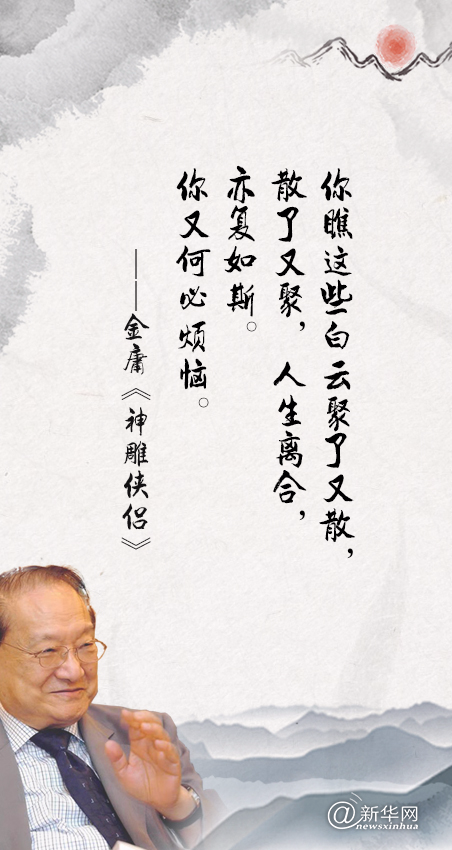 你瞧这些白云聚了又散，
散了又聚，人生离合，
亦复如斯。
你又何必烦恼。
——金庸《神雕侠侣》
@新华网
newsxinhua